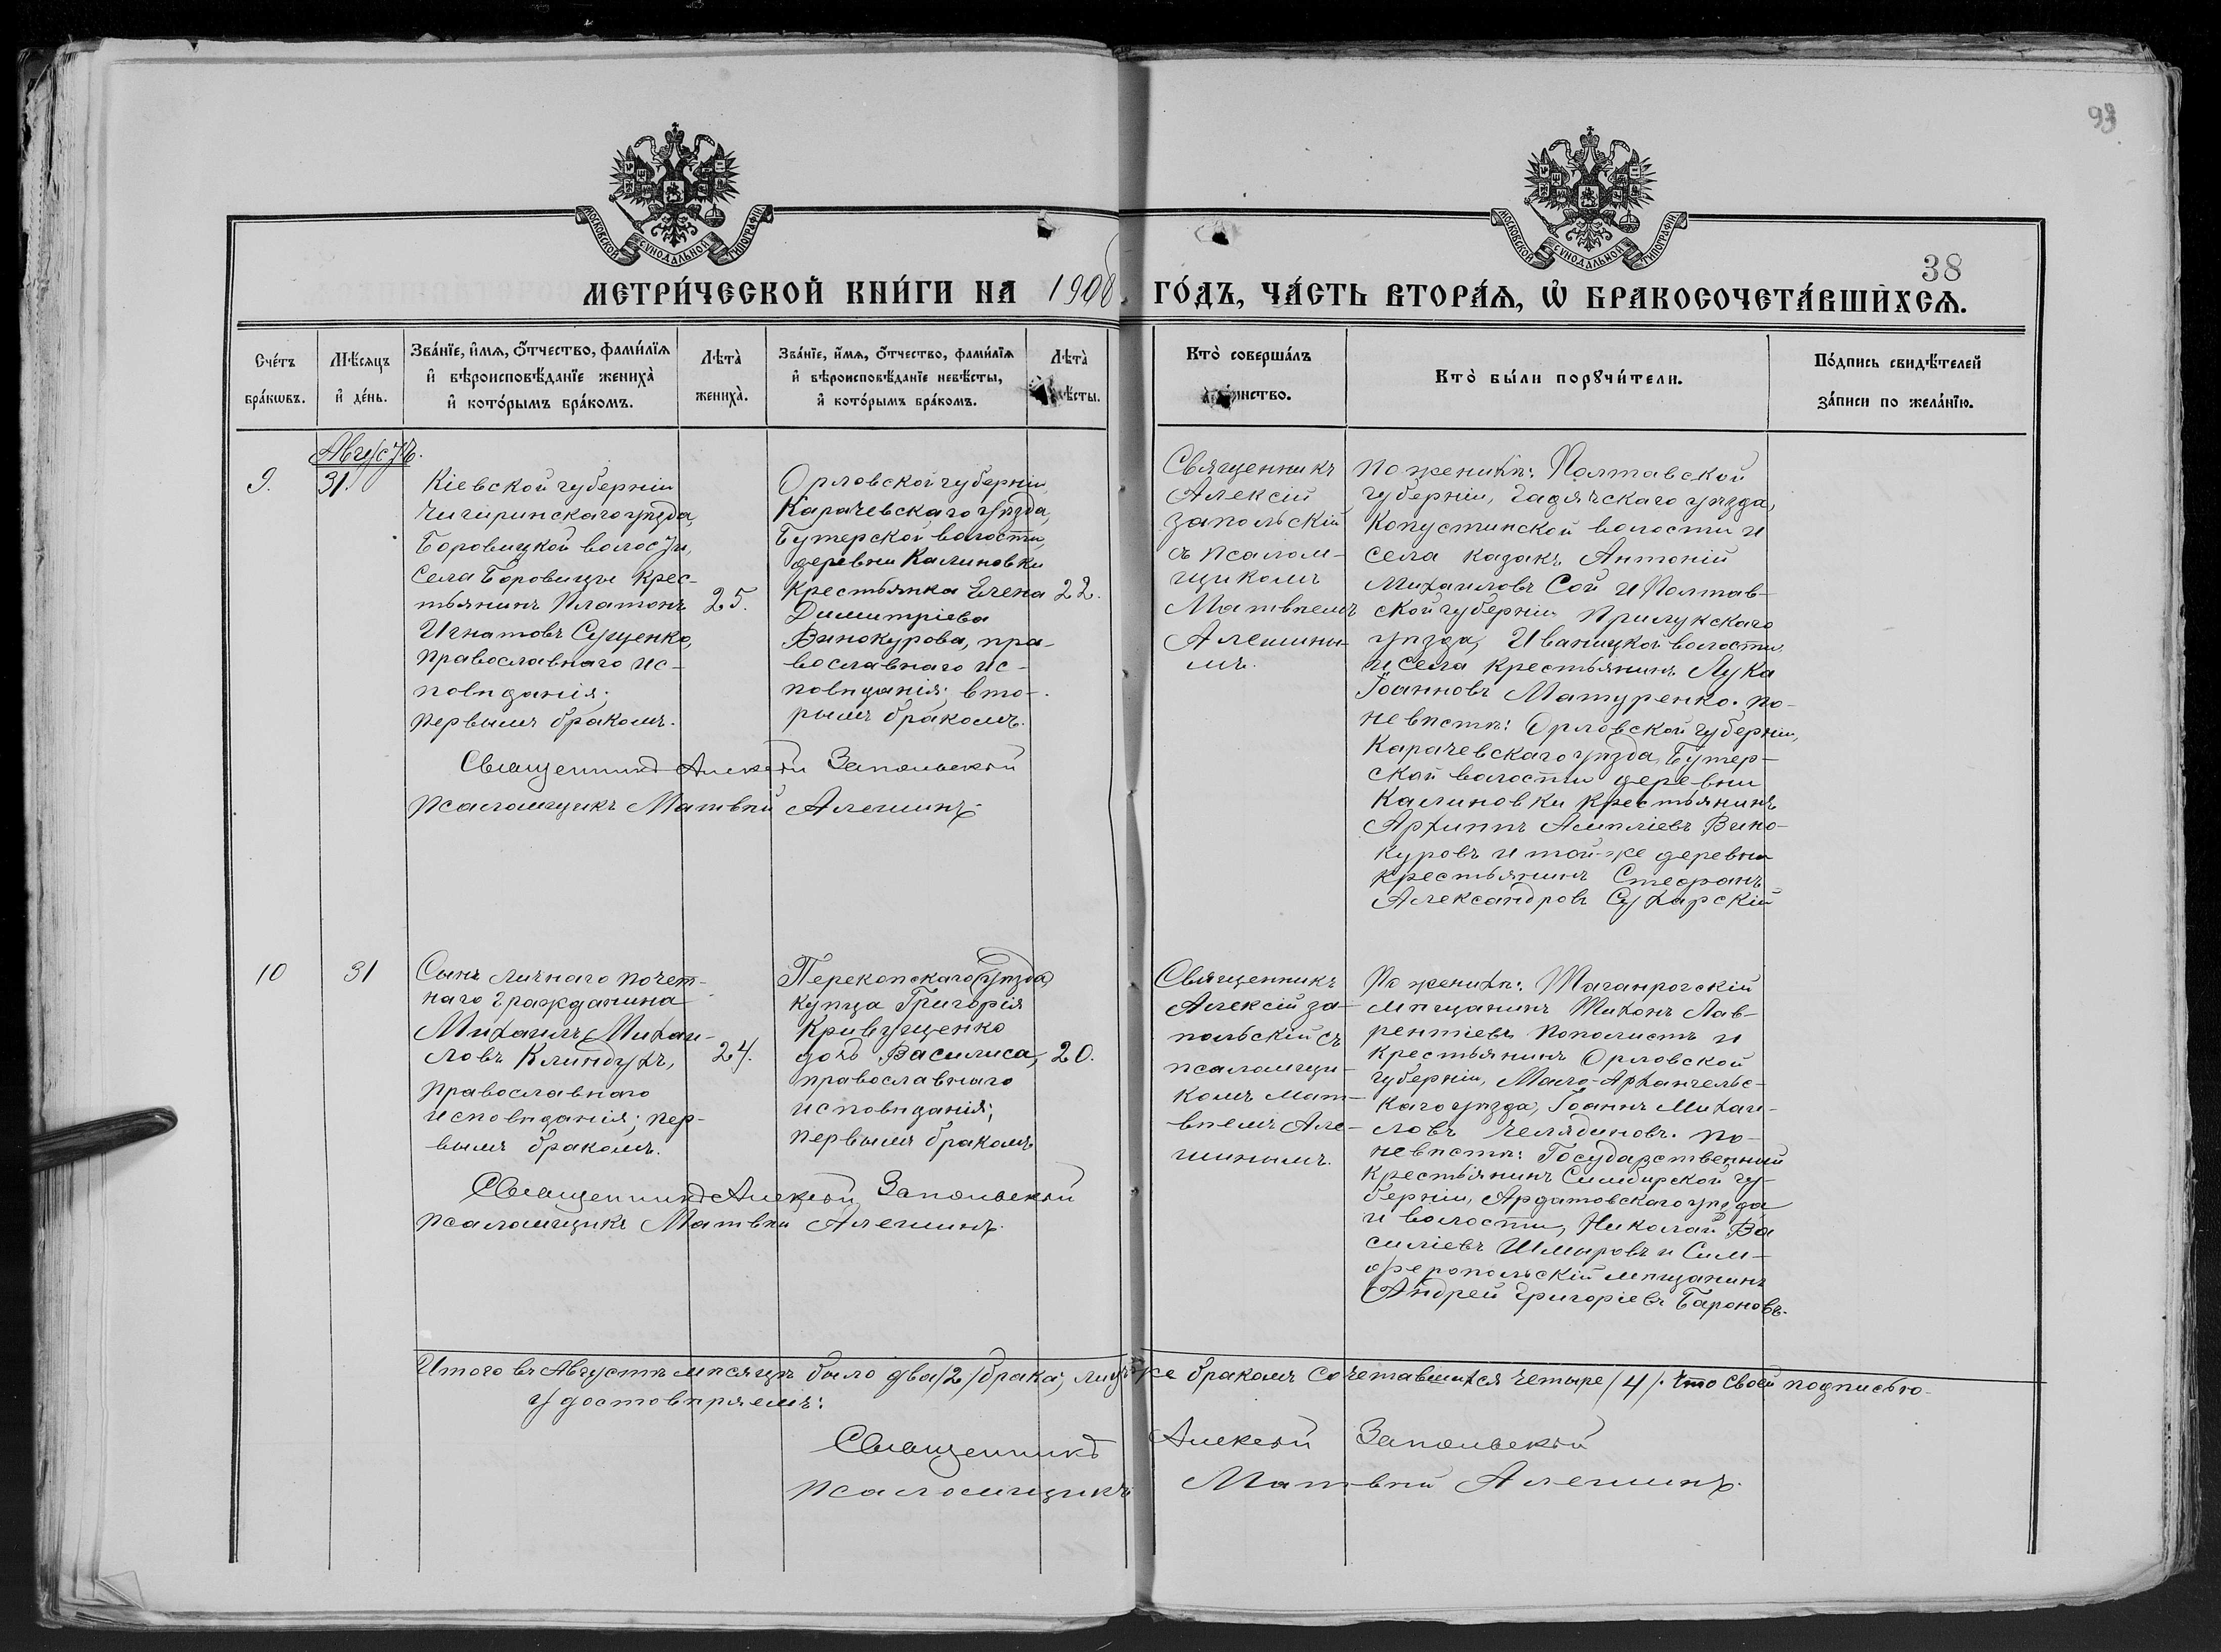 93
МОСКОВСКОЙ СУНОДАЛЬНОЙ ТИПОГРАФІИ
МОСКОВСКОЙ СУНОДАЛЬНОЙ ТИПОГРАФІИ
38
МЕТРИ́ЧЕСКОЙ КНИ́ГИ НА 1906 ГО́ДЪ, ЧА́СТЬ ВТОРА́Я, Ѽ БРАКОСОЧЕТА́ВШИХСЯ.
Сче́тъ
бра́кѡвъ.
Мѣ́сяцъ
и҆ де́нь.
Зва́нїе, и҆́мя, ѻ҆́тчество, фами́лїя
и҆ вѣроисповѣ́данїе жениха̀
и҆ кото́рымъ бра́комъ.
Лѣта̀
жениха̀.
Зва́нїе, и҆́мя, ѻ҆́тчество, фами́лїя
и҆ вѣроисповѣ́данїе невѣ́сты,
и҆ кото́рымъ бра́комъ.
Лѣта̀
ѣсты.
Кто̀ соверша́лъ
инство.
Кто̀ бы́ли порꙋчи́тели.
По́дпись свидѣ́телей
за́писи по жела́нїю.
Августъ.
9.
31.
Кіевской губерніи
Чигиринскаго уѣзда,
Боровицкой волости,
села Боровицы крес-
тьянинъ Платонъ
Игнатовъ Сущенко,
православнаго ис-
повѣданія;
первымъ бракомъ.
25.
Орловской губерніи,
Карачевскаго уѣзда,
Бутерской волости,
деревни Калиновки
крестьянка Елена
Димитріева
Винокурова, пра-
вославнаго ис-
повѣданія; вто-
рымъ бракомъ.
22.
Священникъ
Алексій
Запольскій
съ псалом-
щикомъ
Матвѣемъ
Алешины-
мъ.
По женихѣ: Полтавской
губерніи, Гадячскаго уѣзда,
Копустинской волости и
села казакъ Антоній
Михаиловъ Сой и Полтав-
ской губерніи Прилукскаго
уѣзда, Иваницкой волости
и села крестьянинъ Лука
Іоанновъ Матуренко. По-
невѣстѣ: Орловской губерніи,
Карачевскаго уѣзда, Бутер-
ской волости деревни
Калиновки крестьянинъ
Архиппъ Ампліевъ Вино-
куровъ и той-же деревни
крестьянинъ Стефанъ
Александровъ Сухарскій
Священникъ Алексій Запольскій
Псаломщикъ Матвѣй Алешинъ
10
31
Сынъ личнаго почет-
наго гражданина
Михаилъ Михаи-
ловъ Клиндухъ,
православнаго
исповѣданія; пер-
вымъ бракомъ.
24.
Перекопскаго уѣзда
купца Григорія
Кривущенко
дочь Василиса,
православнаго
исповѣданія;
первымъ бракомъ
20.
Священникъ
Алексій За-
польскій съ
псаломщи-
комъ Мат-
вѣемъ Але-
шинымъ.
По женихѣ: Таганрогскій
мѣщанинъ Тихонъ Лав-
рентіевъ Пополистъ и
крестьянинъ Орловской
губерніи, Мало-Архангельс-
каго уѣзда, Іоаннъ Михаи-
ловъ Челядиновъ. По-
невѣстѣ: Государственный
крестьянинъ Симбирской гу-
берніи, Ардатовскаго уѣзда
и волости, Николай Ва
силіевъ Шмыровъ и Сим-
феропольскій мѣщанинъ
Андрей Григоріевъ Бароновъ.
Священникъ Алексій Запольскій
Псаломщикъ Матвѣй Алешинъ.
Итого въ Августѣ мѣсяцѣ было два /2/ брака; лицъ же бракомъ сочетавшихся четыре /4/. Что своей подписью
удостовѣряемъ:
Священникъ Алексій Запольскій
Псаломщикъ Матвѣй Алешинъ.